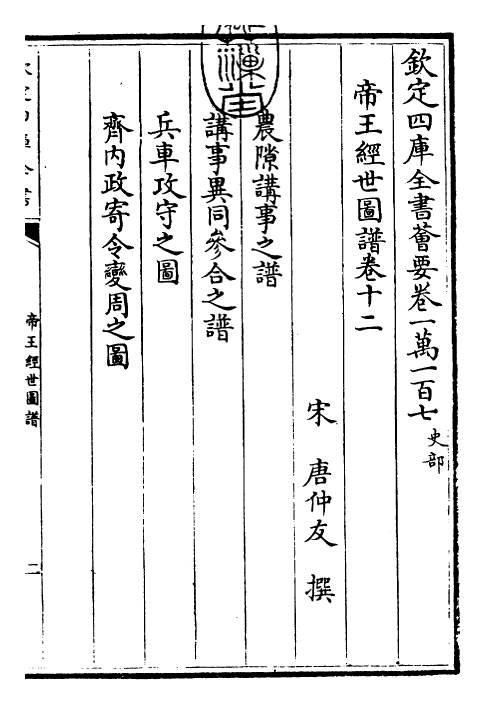 欽定四庫全書薈要卷一萬一百七 史部
帝王經世圖譜卷十二
宋 唐仲友 撰
農隙講事之譜
講事異同參合之譜
兵車攻守之圖
齊內政寄令變周之圖
帝王經世圖譜
二